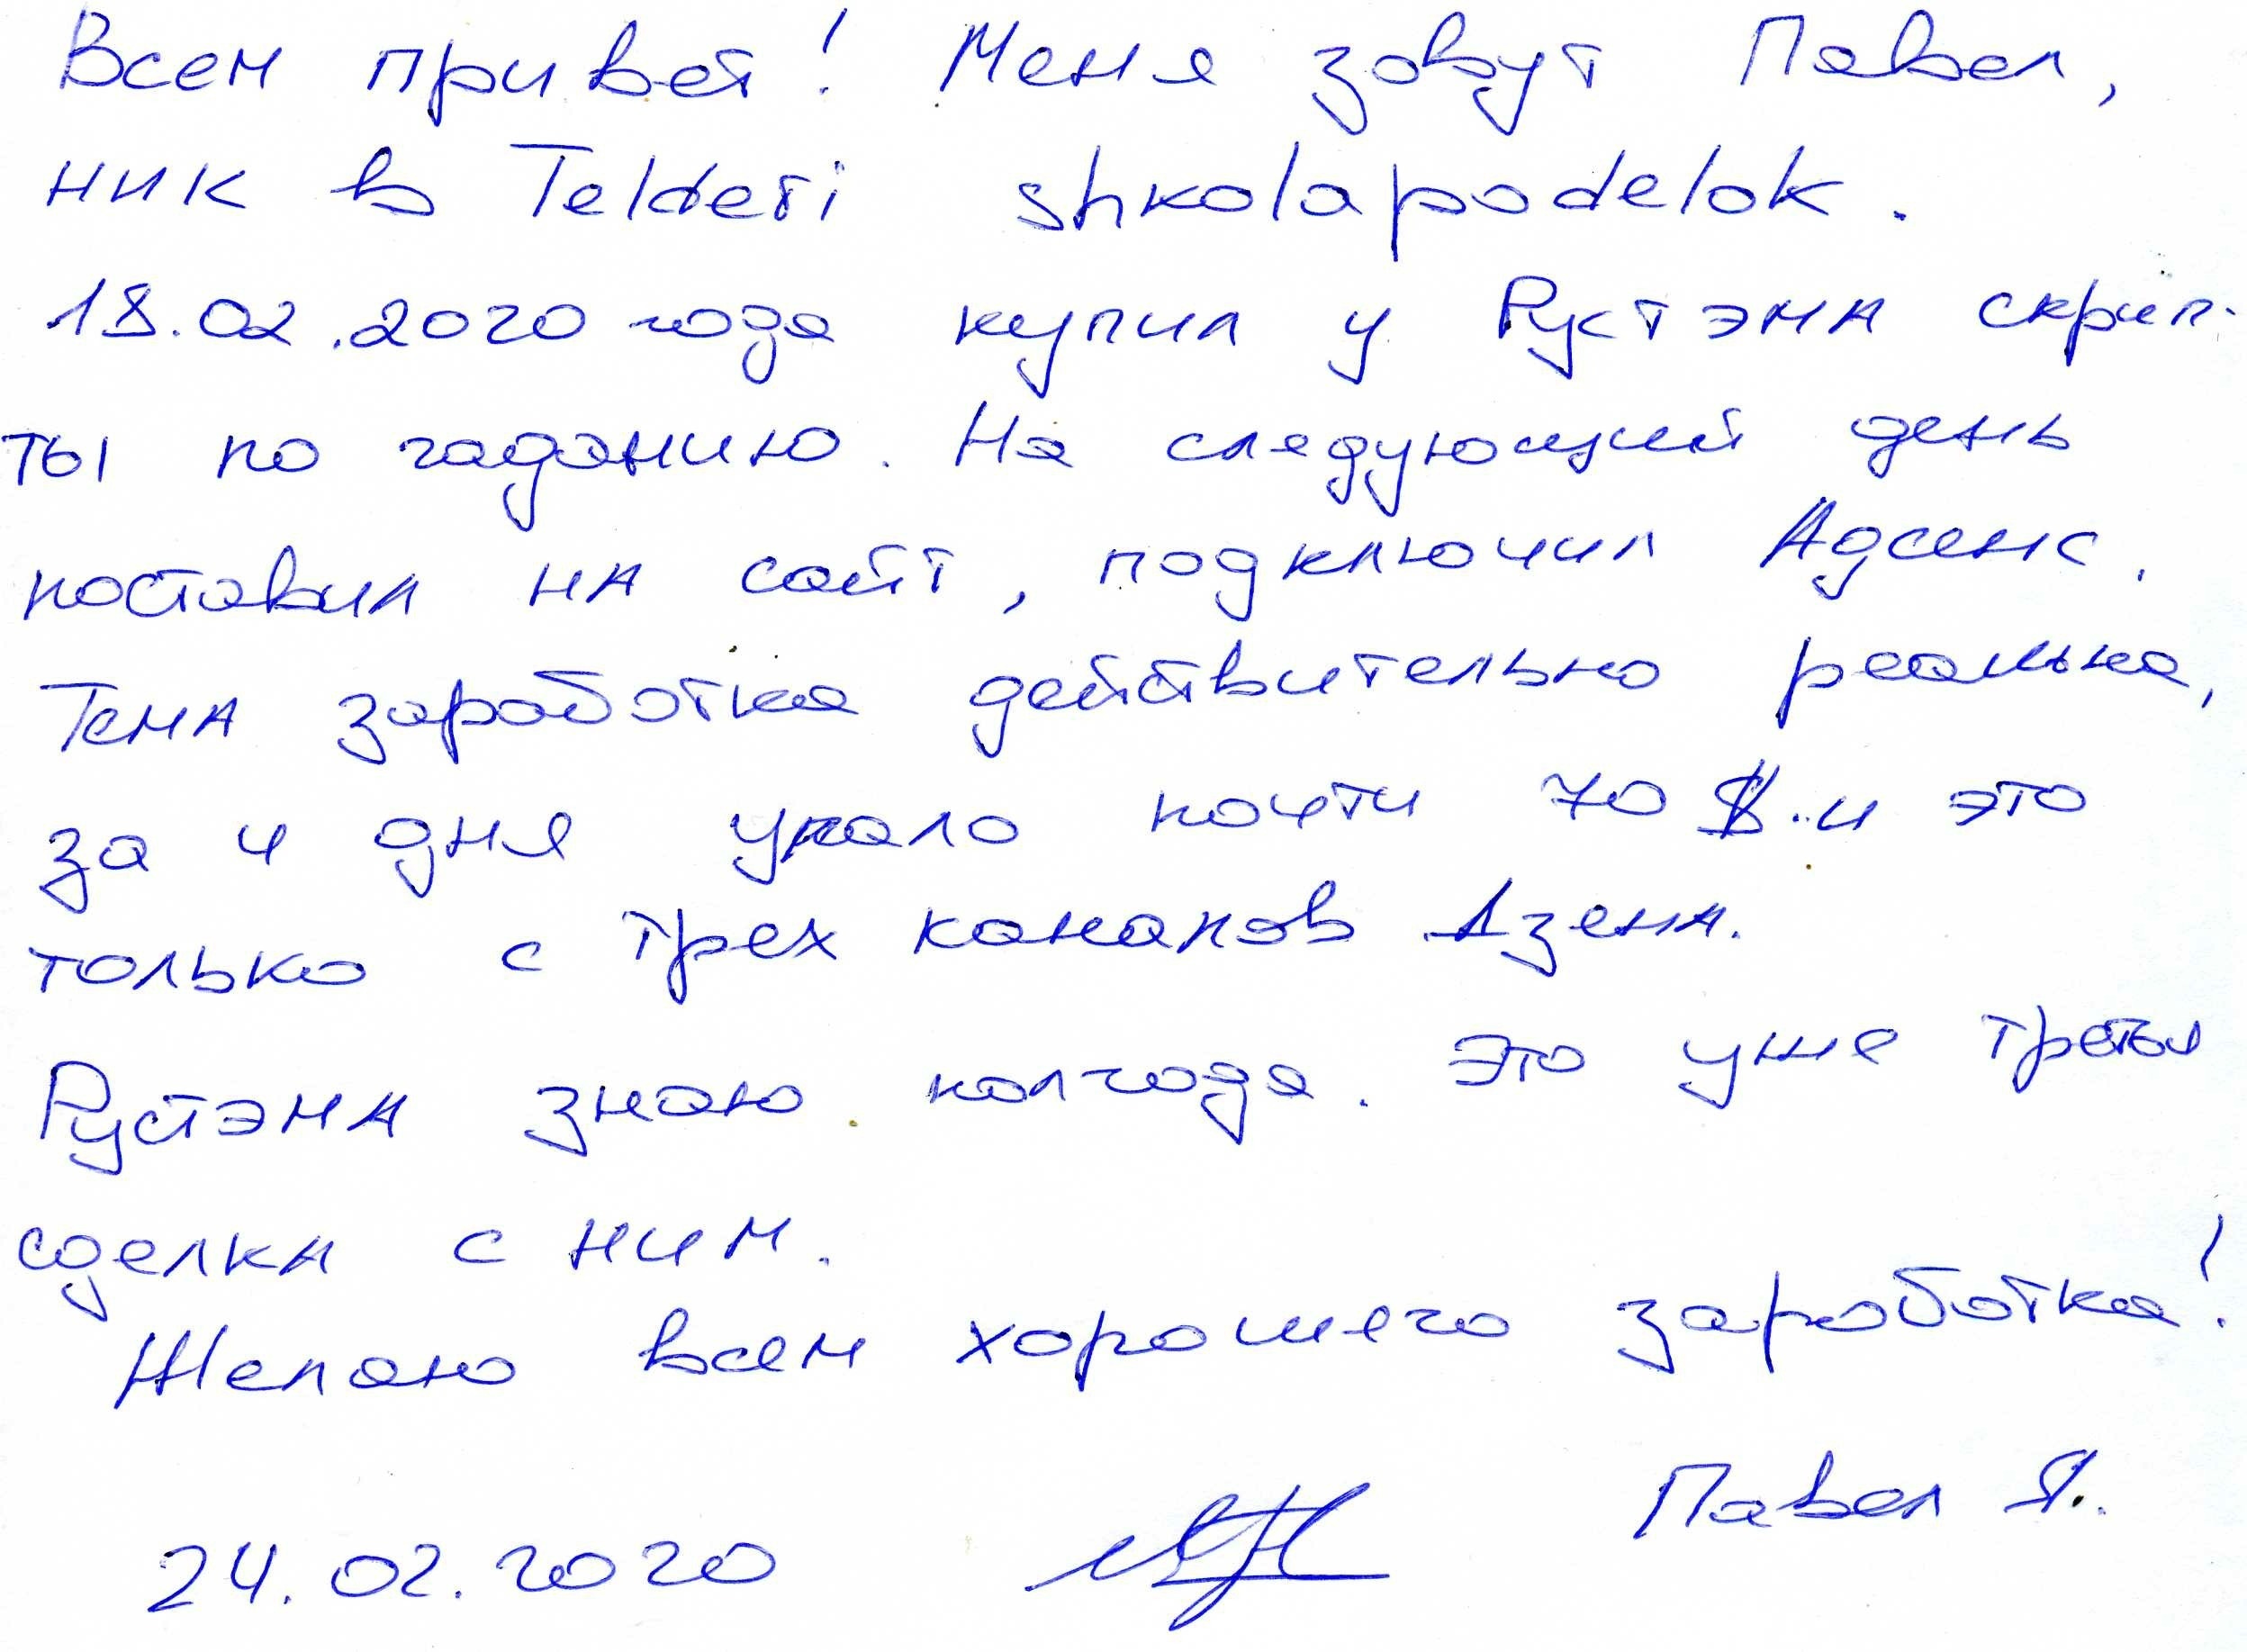 Всем привет! Меня зовут Павел,
ник в Telderi shkolapodelok.
18.02.2020 года купил у Рустэма скрип-
ты по гаданию. На следующий день
поставил на сайт, подключил Адсенс.
Тема заработка действительно реальна,
за 4 дня упало почти 70 $.. и это
только с трех каналов Дзена.
Рустэма знаю полгода. Это уже третья
сделка с ним.
Желаю всем хорошего заработка!
Павел Я.
24.02.2020